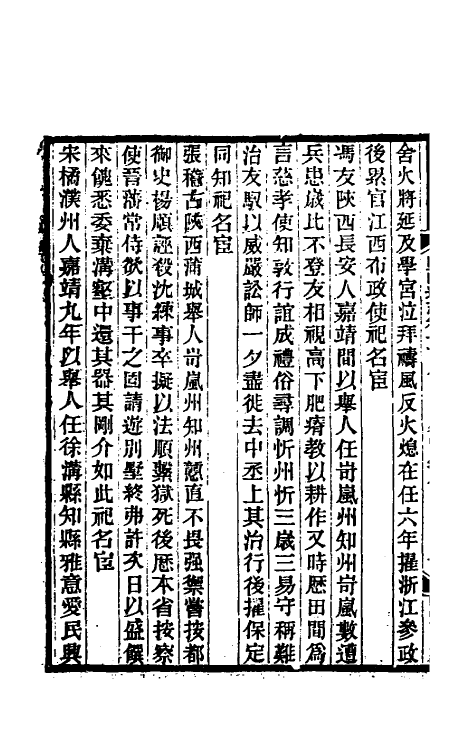 舍火將延及學宮泣拜禱風反火熄在任六年擢浙江參政
後累官江西布政使祀名宦
馮友陝西長安人嘉靖間以舉人任岢嵐州知州岢嵐數遭
兵患歲比不登友相視高下肥瘠教以耕作又時歷田間爲
言慈孝使知敦行誼成禮俗尋調忻州忻三歲三易守稱難
治友馭以威嚴訟師一夕盡徙去中丞上其治行後擢保定
同知祀名宦
張稽古陝西蒲城舉人岢嵐州知州戇直不畏强禦嘗按都
御史楊順誣殺沈鍊事卒擬以法順繫獄死後歷本省按察
使晉藩常侍欲以事干之固請遊別墅終弗許次日以盛饌
來餽悉委棄溝壑中還其器其剛介如此祀名宦
宋橘濮州人嘉靖九年以舉人任徐溝縣知縣雅意愛民興